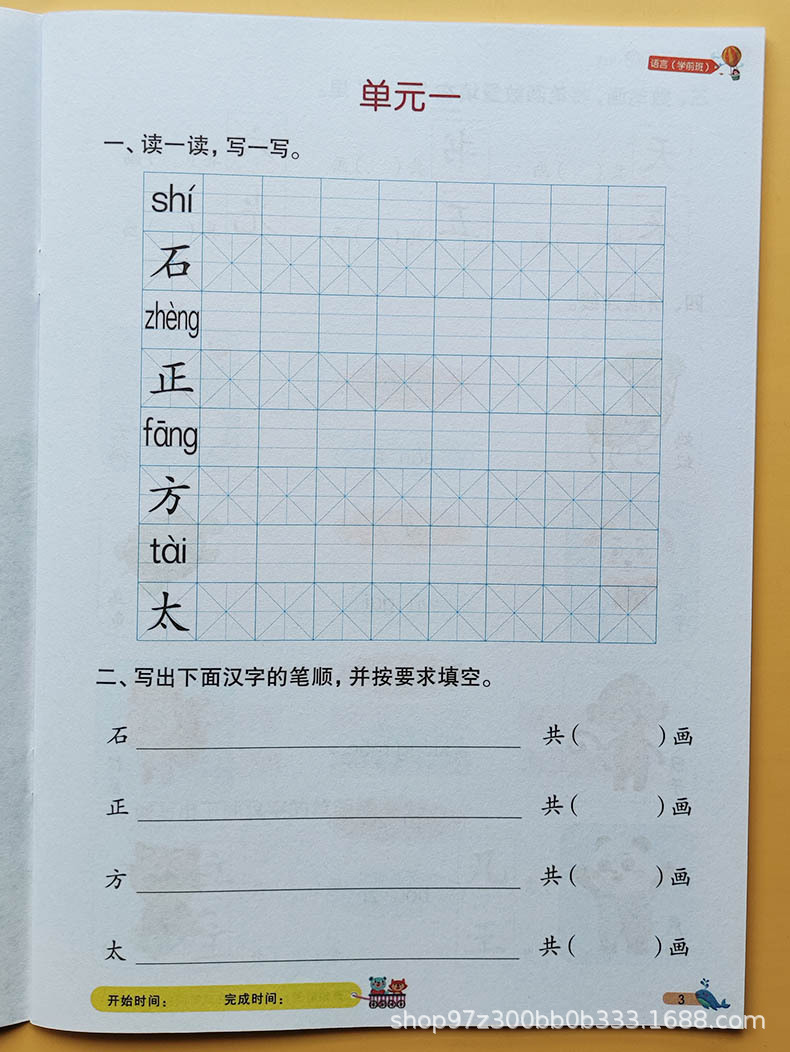 语言（学前班）
单元一
一、读一读，写一写。
shí
石
zhèng
正
fāng
方
tài
太
二、写出下面汉字的笔顺，并按要求填空。
石 共( )画
正 共( )画
方 共( )画
太 共( )画
开始时间： 完成时间：
3
shop97z300bb0b333.1688.com